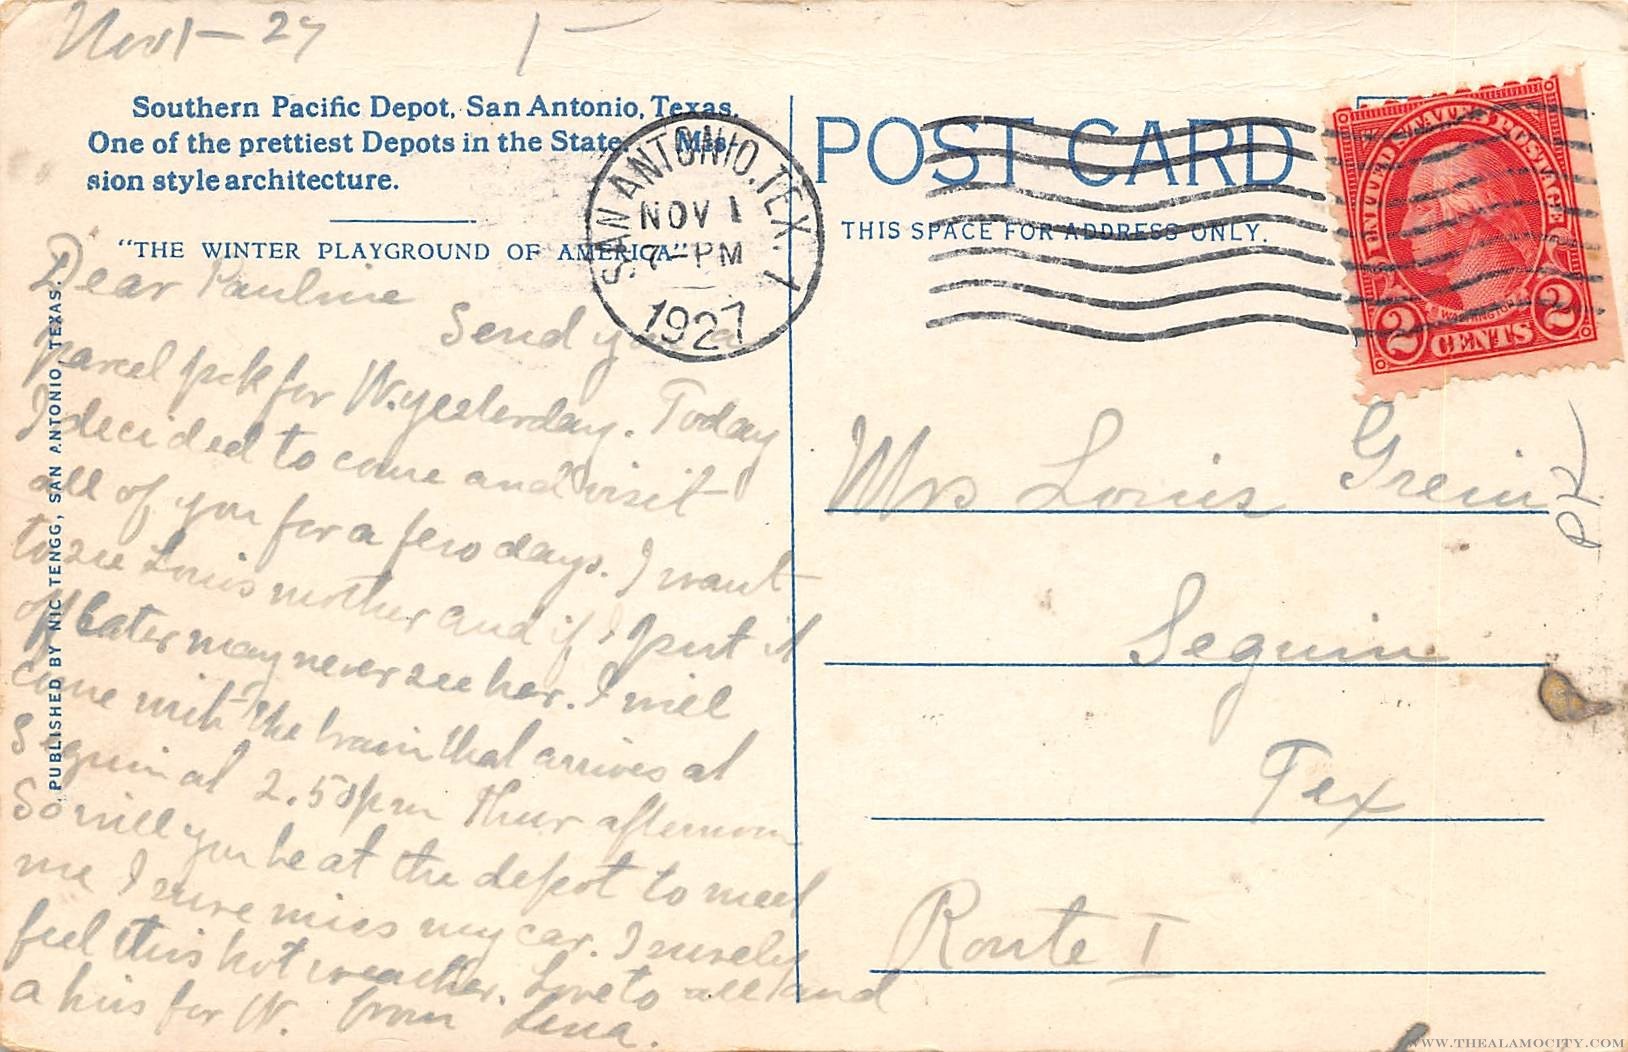 Nov 1 - 27
1 -
Southern Pacific Depot, San Antonio, Texas.
One of the prettiest Depots in the State. Mis-
sion style architecture.
"THE WINTER PLAYGROUND OF AMERICA"
PUBLISHED BY NIC TENGG, SAN ANTONIO, TEXAS.
SAN ANTONIO, TEX. 1
NOV 1
7 - PM
1927
Dear Pauline
Send you a
parcel pck for W. yesterday. Today
I decided to come and visit
all of you for a few days. I want
to see Louis mother and if I put it
off later may never see her. I will
come with the train that arrives at
Seguin at 2.50 pm Thur afternoon
So will you be at the depot to meet
me I sure miss my car. I surely
feel this hot weather. Love to all and
a kiss for W. from Lena.
POST CARD
THIS SPACE FOR ADDRESS ONLY.
UNITED STATES POSTAGE
WASHINGTON
2 CENTS 2
Mrs Louis Grein
Seguin
Tex
Route I
WWW.THEALAMOCITY.COM